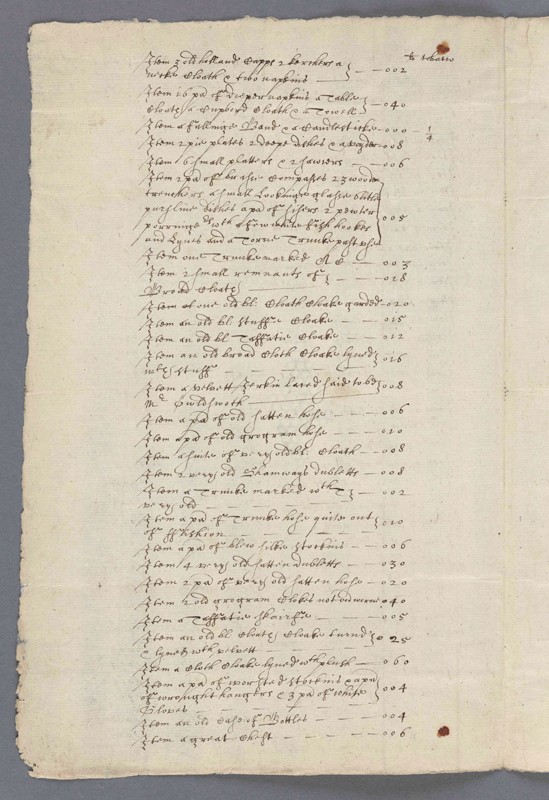 lb tobacco
Item 3 old holland Capps 2 kerchers a
necke Cloath & two napkins — 002
Item 16 pa of diaper napkins a Table
Cloath a Cupbird Cloath & a Towell — 040
Item a fallinge Band & a Candlesticke — 000 — 1/4
Item 2 pie plates 2 deepe dishes & a — 008
Item 6 small platters & 2 sawcers — 006
Item 2 pa of brasse Compasses 23 wooden
trenchers a small Lookinge glasse 6 little
pursline dishes a pa of sisers 2 pewter
porringers wth a few white fish hookes
and Lynes and a Torne Trunke past use — 005
Item one Trunke marked R C — 003
Item 2 small remnants of
Broad Cloath — 018
Item at one old bl: Cloath Cloake garded — 020
Item an old bl: stuffe Cloake — 015
Item an old bl Taffatie Cloake — 012
Item an old broad Cloth Cloake lyned
wth stuff — 016
Item a velvett Jerkin Laced saide to be
Mr Houldsworth — 008
Item a pa of old satten hose — 006
Item a pa of old grogram hose — 010
Item a suite of very old bl: Cloath — 008
Item 2 very old Shamways dubletts — 008
Item a Trunke marked wth T
very old — 002
Item a pa of Trunke hose quite out
of ffashion — 010
Item a pa of blew silke stockins — 006
Item 4 very old satten dubletts — 030
Item 2 pa of very old satten hose — 020
Item 2 old grogram Clokes not worne — 040
Item a Taffatie skarffe — 005
Item an old bl Cloath Cloake turnd
& lyned wth velvett — 025
Item a Cloth Cloake lyned wth plush — 060
Item a pa of worsted stockins & a pa
of wrought hangers & 3 pa of white
Gloves — 004
Item an old Case of Bottles — 004
Item a great Chest — 006